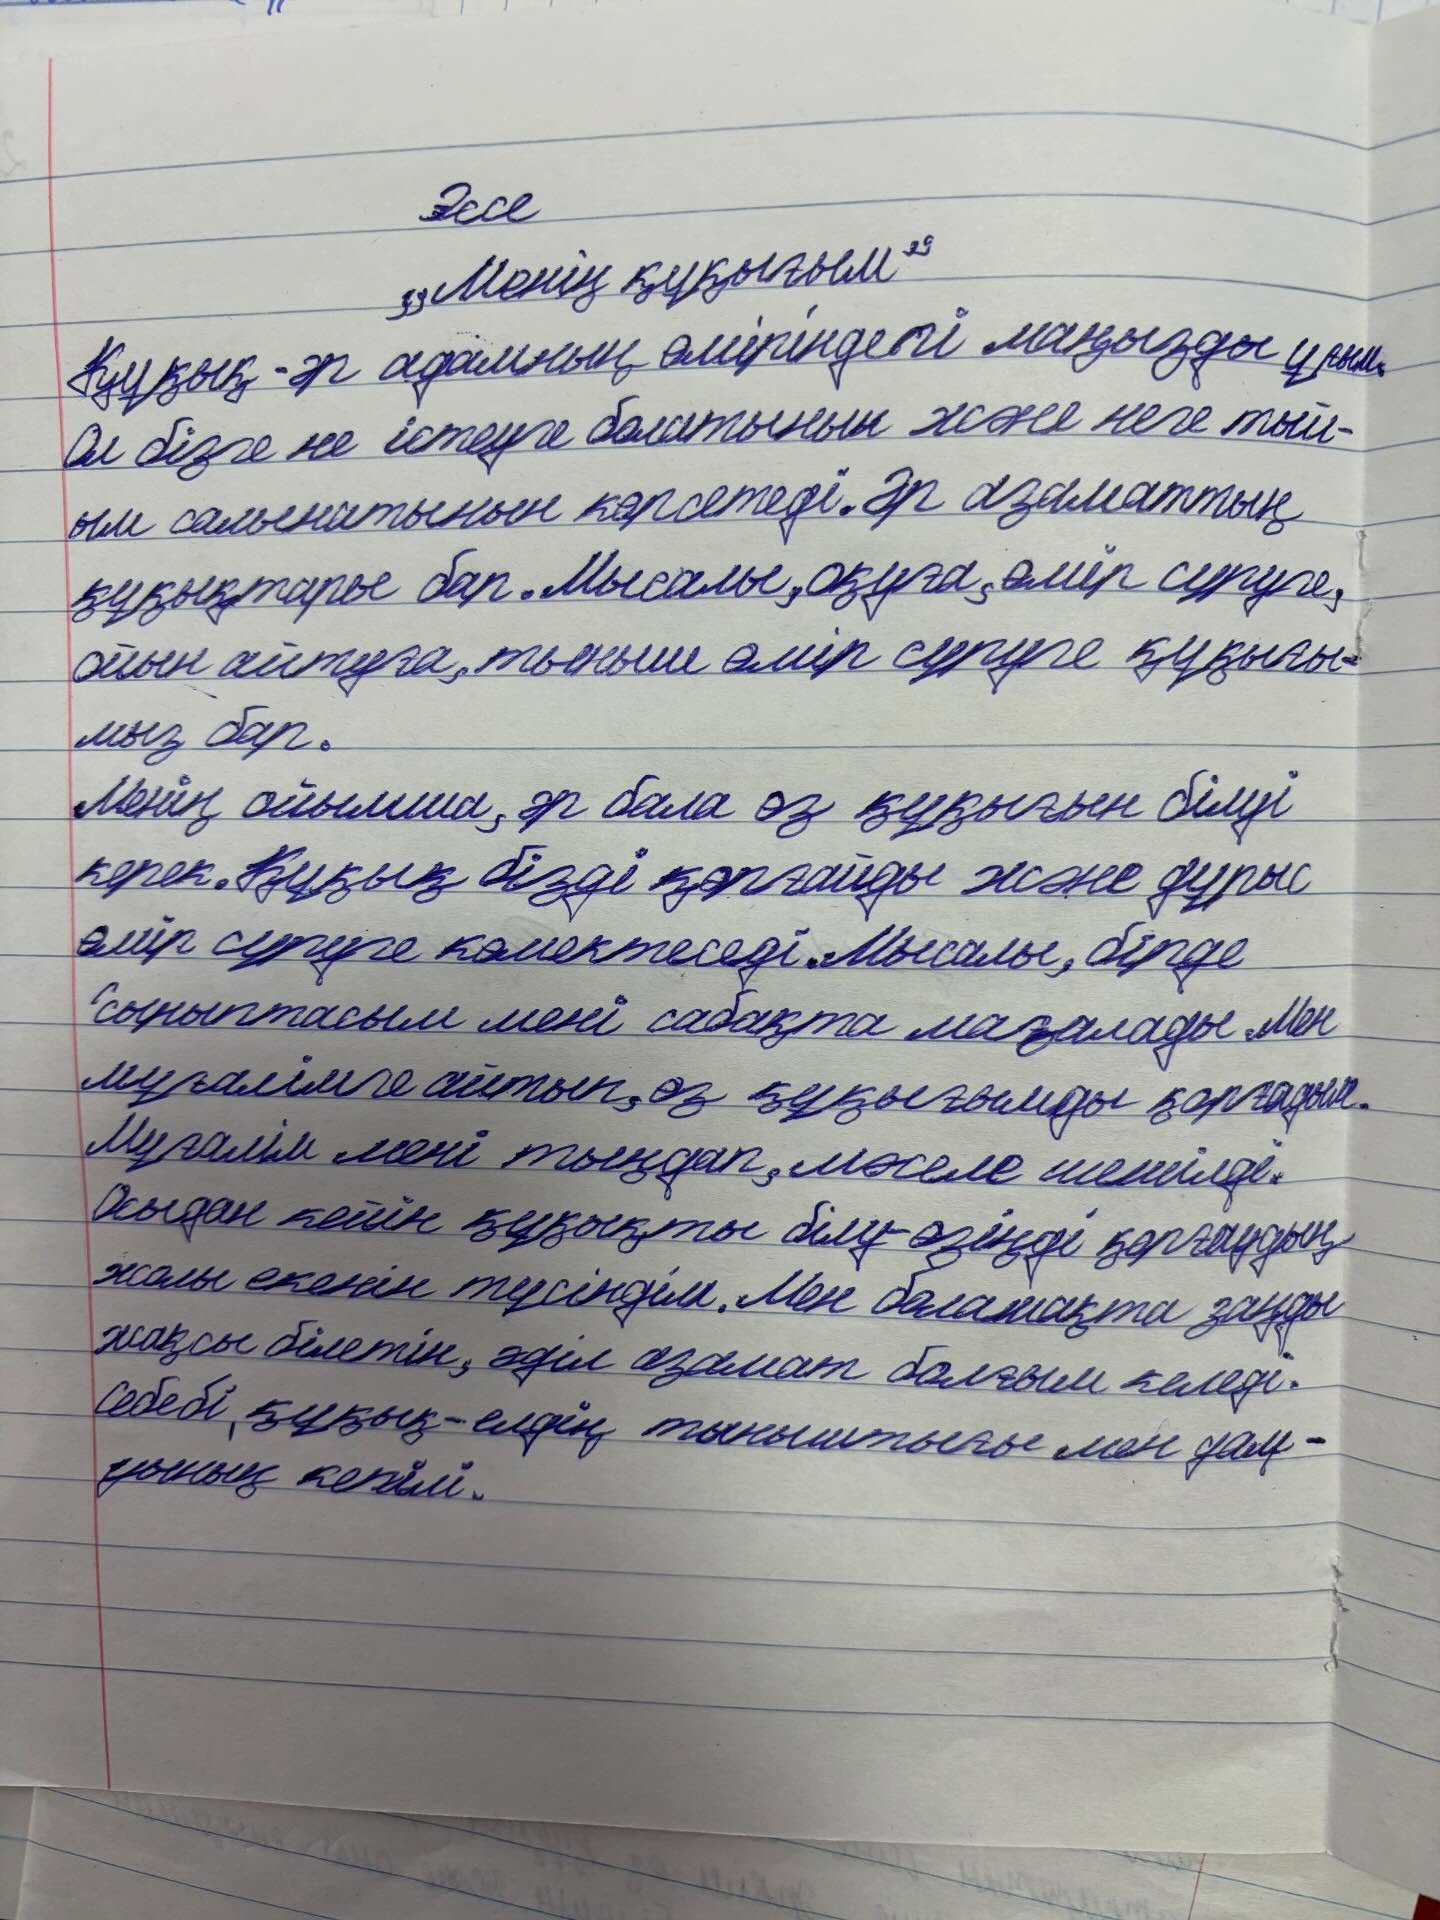 Эссе
„Менің құқығым"
Құқық-әр адамның өміріндегі маңызды ұғым.
Ол бізге не істеуге болатынын және неге тый-
ым салынатынын көрсетеді. Әр азаматтың
құқықтары бар. Мысалы, оқуға, өмір сүруге,
ойын айтуға, тыныш өмір сүруге құқығы-
мыз бар.
Менің ойымша, әр бала өз құқығын білуі
керек. Құқық бізді қорғайды және дұрыс
өмір сүруге көмектеседі. Мысалы, бірде
сыныптасым мені сабақта мазалады. Мен
мұғалімге айтып, өз құқығымды қорғадым.
Мұғалім мені тыңдап, мәселе шешілді.
Осыдан кейін құқықты білу-өзіңді қорғаудың
жолы екенін түсіндім. Мен болашақта заңды
жақсы білетін, әділ азамат болғым келеді.
Себебі, құқық-елдің тыныштығы мен дам-
уының кепілі.